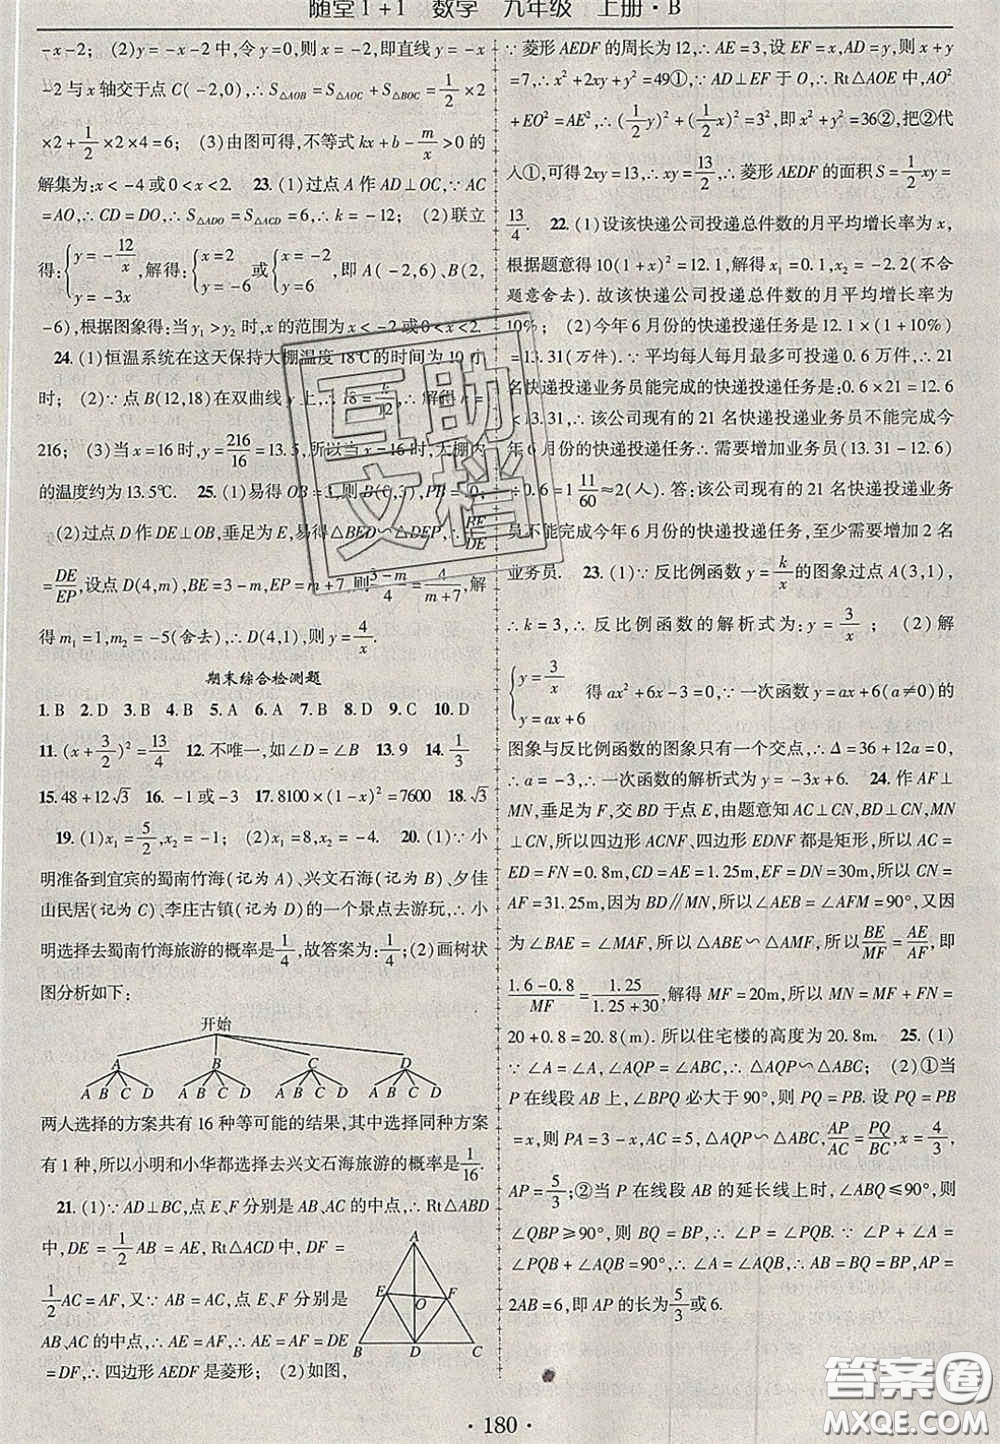 随堂1+1 数学 九年级 上册·B
-x-2；(2)y=-x-2中,令y=0,则x=-2,即直线y=-x
-2与x轴交于点C(-2,0),∴S△AOB=S△AOC+S△BOC=1/2×2
×2+1/2×2×4=6；(3)由图可得,不等式kx+b-m/x>0的
解集为:x<-4或0<x<2. 23.(1)过点A作AD⊥OC,∵AC
=AO,∴CD=DO,∴S△ADO=S△ACD=6,∴k=-12；(2)联立
得:{y=-12/x, y=-3x},解得:{x=2, y=-6}或{x=-2, y=6},即A(-2,6)、B(2,
-6),根据图象得:当y₁>y₂时,x的范围为x<-2或0<x<2.
24.(1)恒温系统在这天保持大棚温度18℃的时间为10小
时；(2)∵点B(12,18)在双曲线y=k/x上,∴18=k/12,∴解得k=
216；(3)当x=16时,y=216/16=13.5,所以当x=16时,大棚内
的温度约为13.5℃. 25.(1)易得OB=3,则B(0,3),PB=
(2)过点D作DE⊥OB,垂足为E,易得△BED∽△DEP,∴BE/DE
=DE/EP,设点D(4,m),BE=3-m,EP=m+7,则(3-m)/4=4/(m+7),解
得m₁=1,m₂=-5(舍去),∴D(4,1),则y=4/x.
期末综合检测题
1.B 2.D 3.B 4.B 5.A 6.A 7.B 8.D 9.C 10.D
11.(x+3/2)²=13/4 12.不唯一,如∠D=∠B 13.9 14.1/3
15.48+12√3 16.-1或-3 17.8100×(1-x)²=7600 18.√3
19.(1)x₁=5/2,x₂=-1；(2)x₁=8,x₂=-4. 20.(1)∵小
明准备到宜宾的蜀南竹海(记为A)、兴文石海(记为B)、夕佳
山民居(记为C)、李庄古镇(记为D)的一个景点去游玩,∴小
明选择去蜀南竹海旅游的概率是1/4,故答案为:1/4；(2)画树状
图分析如下：
开始
A B C D
A B C D A B C D A B C D A B C D
两人选择的方案共有16种等可能的结果,其中选择同种方案
有1种,所以小明和小华都选择去兴文石海旅游的概率是1/16.
21.(1)∵AD⊥BC,点E、F分别是AB、AC的中点,Rt△ABD
中,DE=1/2AB=AE,Rt△ACD中,DF=
1/2AC=AF,又∵AB=AC,点E、F分别是
AB、AC的中点,∴AE=AF,∴AE=AF=DE
=DF,∴四边形AEDF是菱形；(2)如图,
A
E O F
B D C
∵菱形AEDF的周长为12,∴AE=3,设EF=x,AD=y,则x+y
=7,∴x²+2xy+y²=49①,∵AD⊥EF于O,∴Rt△AOE中,AO²
+EO²=AE²,∴(1/2y)²+(1/2x)²=3²,即x²+y²=36②,把②代
入①,可得2xy=13,∴xy=13/2,∴菱形AEDF的面积S=1/2xy=
13/4. 22.(1)设该快递公司投递总件数的月平均增长率为x,
根据题意得10(1+x)²=12.1,解得x₁=0.1,x₂=-2.2(不合
题意舍去).故该快递公司投递总件数的月平均增长率为
10%；(2)今年6月份的快递投递任务是12.1×(1+10%)
=13.31(万件).∵平均每人每月最多可投递0.6万件,∴21
名快递投递业务员能完成的快递投递任务是:0.6×21=12.6
<13.31,∴该公司现有的21名快递投递业务员不能完成今
年6月份的快递投递任务∴需要增加业务员(13.31-12.6)
÷0.6=1 11/60≈2(人).答:该公司现有的21名快递投递业务
员不能完成今年6月份的快递投递任务,至少需要增加2名
业务员. 23.(1)∵反比例函数y=k/x的图象过点A(3,1),
∴k=3,∴反比例函数的解析式为:y=3/x；(2)解
{y=3/x, y=ax+6}得ax²+6x-3=0∵一次函数y=ax+6(a≠0)的
图象与反比例函数的图象只有一个交点,∴Δ=36+12a=0,
∴a=-3,∴一次函数的解析式为y=-3x+6. 24.作AF⊥
MN,垂足为F,交BD于点E,由题意知AC⊥CN,BD⊥CN,MN
⊥CN,所以四边形ACNF、四边形EDNF都是矩形,所以AC=
ED=FN=0.8m,CD=AE=1.25m,EF=DN=30m,所以CN=
AF=31.25m,因为BD∥MN,所以∠AEB=∠AFM=90°,又因
为∠BAE=∠MAF,所以△ABE∽△AMF,所以BE/MF=AE/AF,即
(1.6-0.8)/MF=1.25/(1.25+30),解得MF=20m,所以MN=MF+FN=
20+0.8=20.8(m).所以住宅楼的高度为20.8m. 25.(1)
∵∠A=∠A,∠AQP=∠ABC,∴△AQP∽△ABC；(2)①当
P在线段AB上,∠BPQ必大于90°,则PQ=PB.设PQ=PB
=x,则PA=3-x,AC=5,△AQP∽△ABC,AP/AC=PQ/BC,x=4/3,
AP=5/3；②当P在线段AB的延长线上时,∠QBA≤90°,则
∠QBP≥90°,则BQ=BP,∴∠P=∠PQB.∵∠P+∠A=
∠PQB+∠AQB=90°,∴∠A=∠AQB,∴AB=BQ=BP,AP=
2AB=6,即AP的长为5/3或6.
互助
文档
答案圈
MXQE.COM
·180·